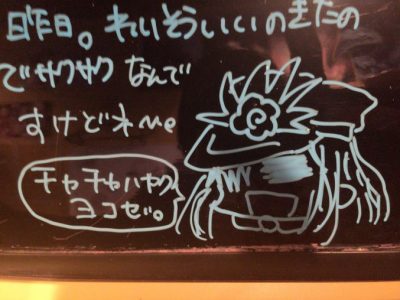 昨日。れいそういいのきたの
でサクサクなんで
すけどネMe
チャチャハヤク
ヨコゼ。